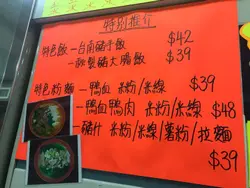 特別推介
特色飯－台南豬手飯 $42
－秘製豬大腸飯 $39
特色粉麵－鴨血 米粉/米線 $39
－鴨血鴨肉 米粉/米線 $48
－豬什 米粉/米線/薯粉/拉麵
$39